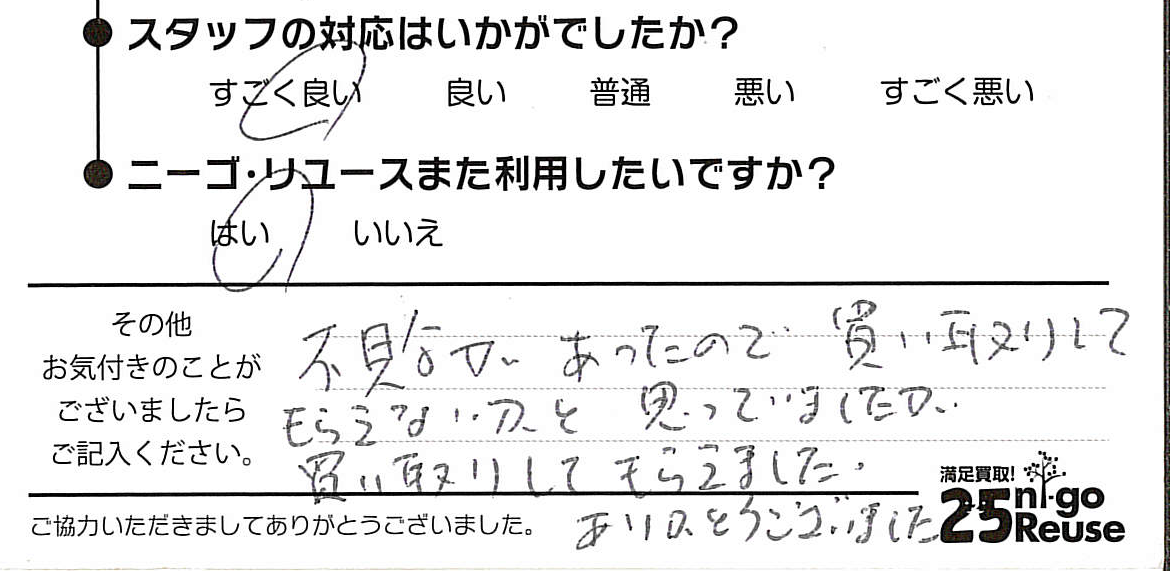 スタッフの対応はいかがでしたか?
すごく良い 良い 普通 悪い すごく悪い
ニーゴ・リユースまた利用したいですか?
はい いいえ
その他
お気付きのことが
ございましたら
ご記入ください。
不具合が あったので 買い取りして
もらえないかと 思っていましたが
買い取りして もらえました。
ありがとうございました
ご協力いただきましてありがとうございました。
満足買取!
25 ni-go
Reuse